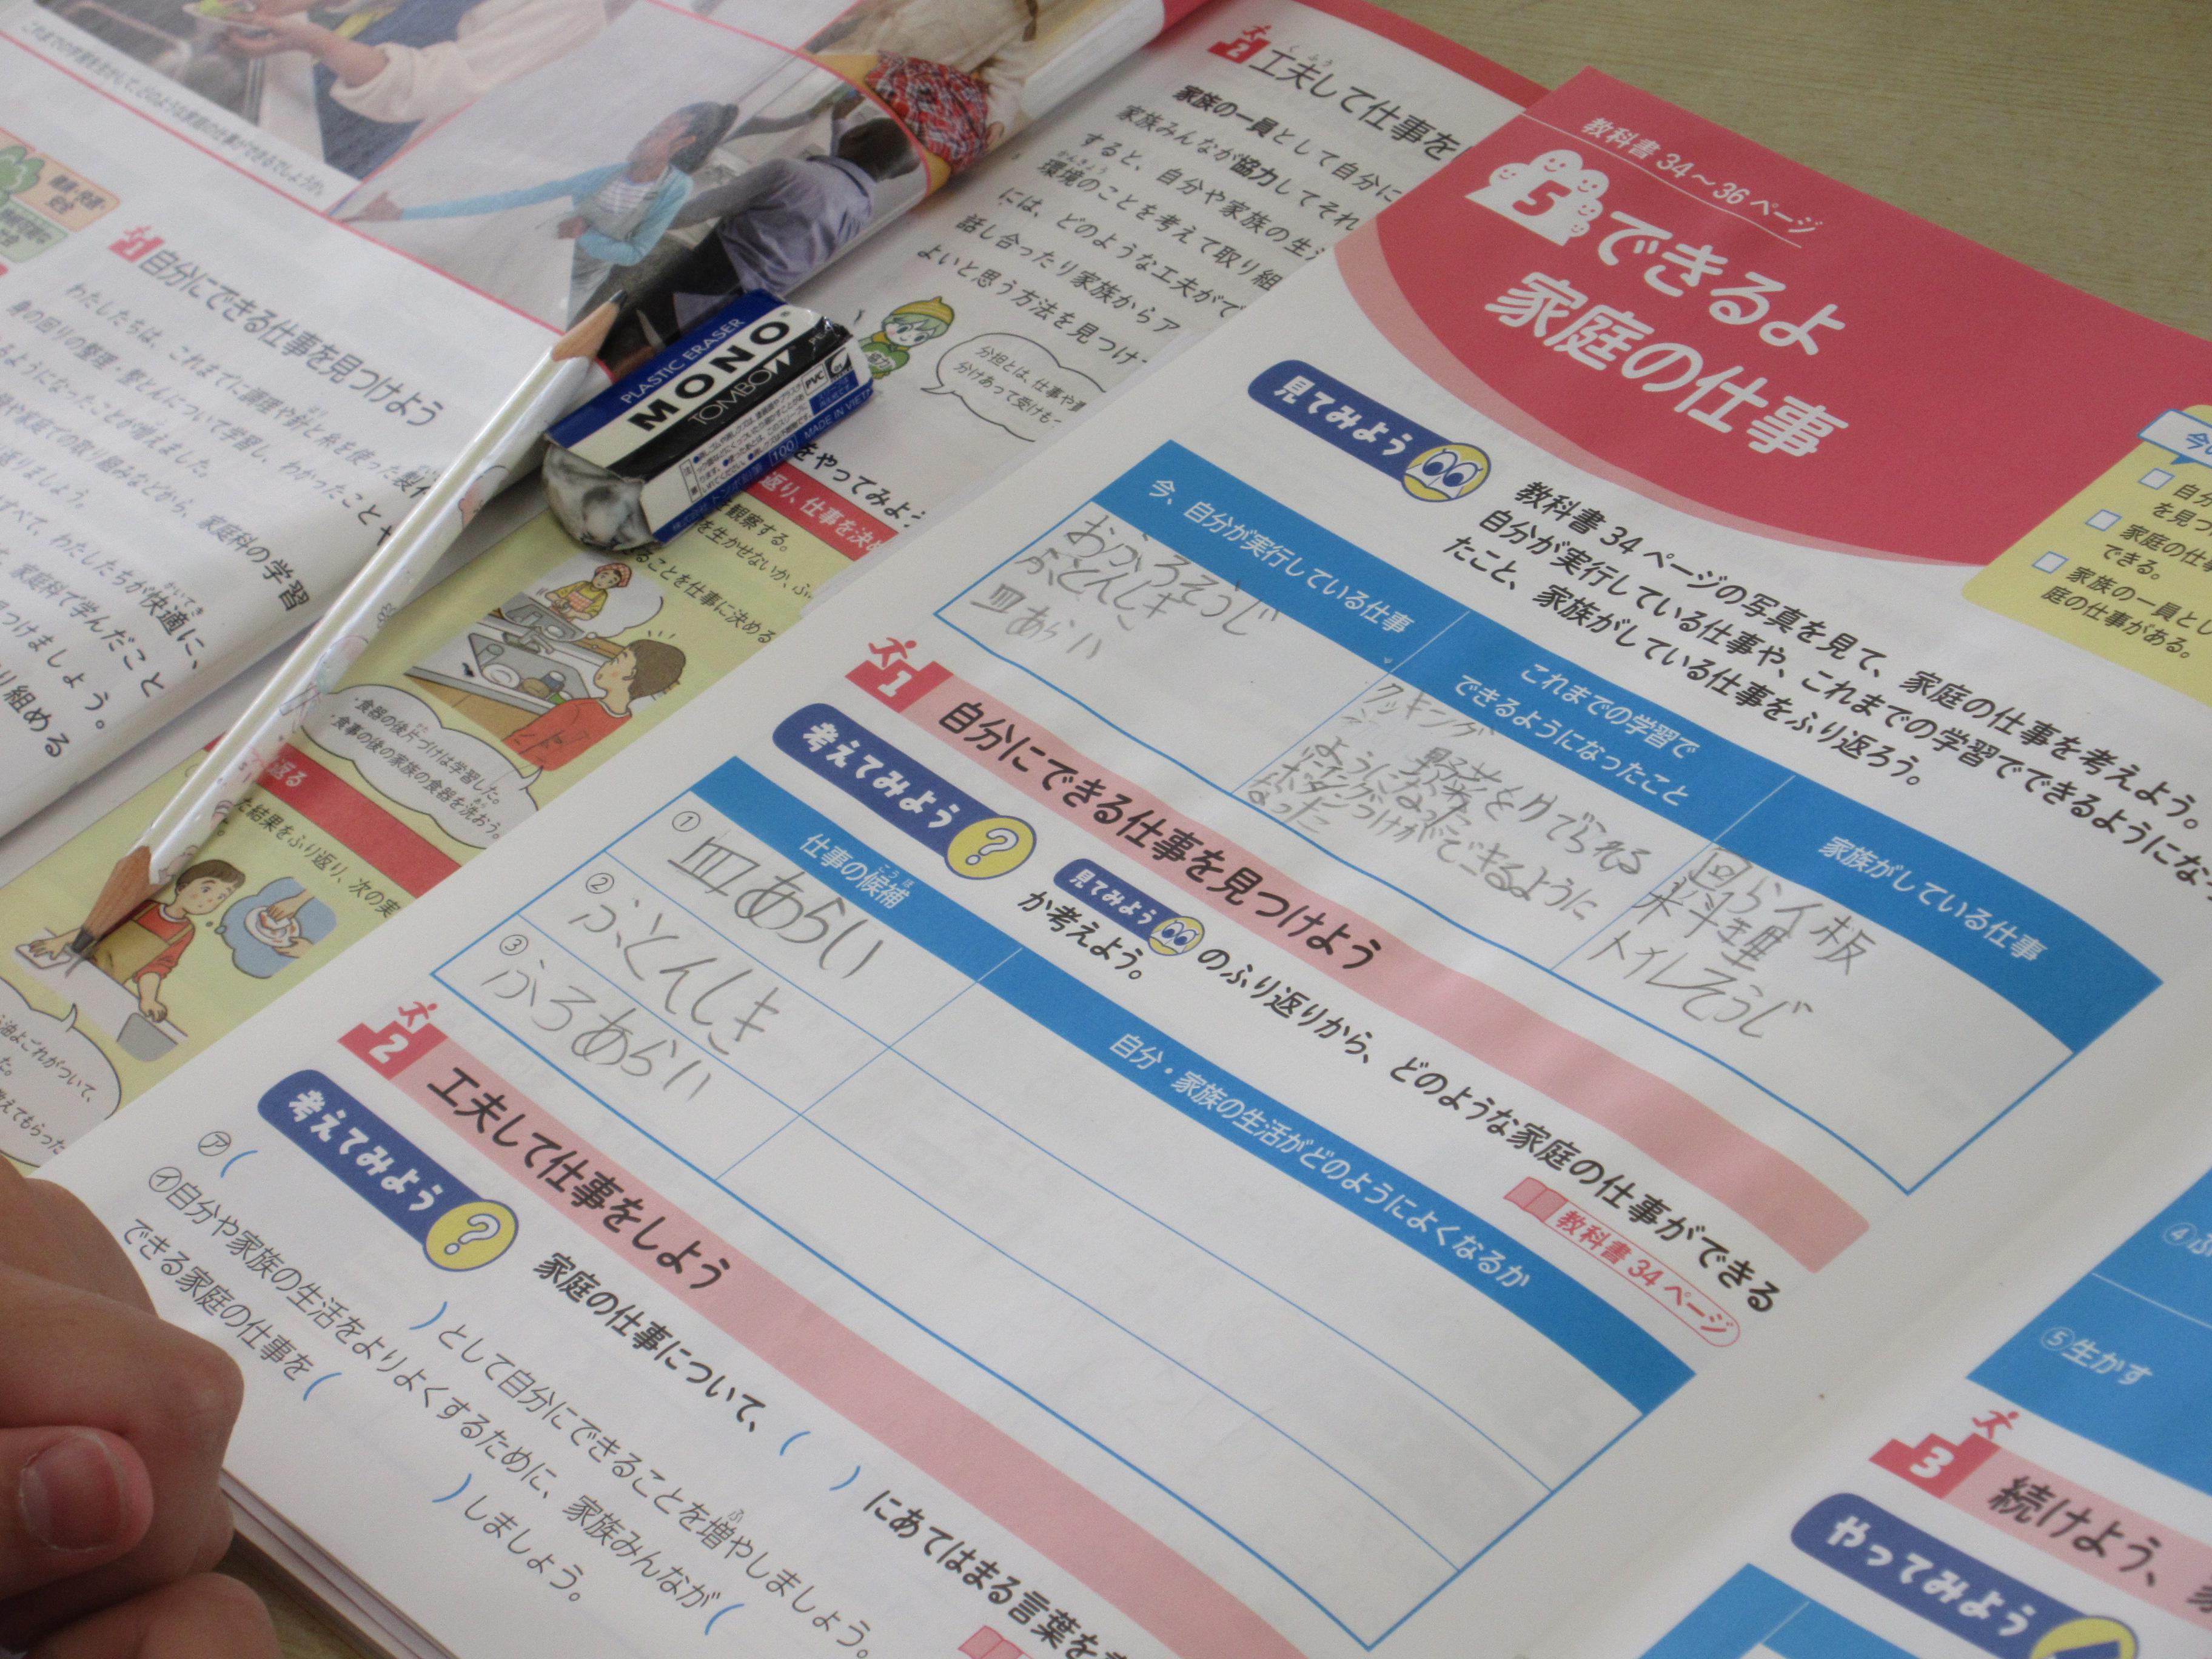 これまでの学習を生かして、どのような家庭の仕事ができるでしょうか。
1 自分にできる仕事を見つけよう
わたしたちは、これまでに調理や針と糸を使った製作
身の回りの整理・整とんについて学習し、わかったことや
るようになったことが増えました。
や家庭での取り組みなどから、家庭科の学習
返りましょう。
すべて、わたしたちが快適に、
家庭科で学んだこと
見つけましょう。
り組める
2 工夫して仕事を
家族の一員として自分に
家族みんなが協力してそれ
すると、自分や家族の生
環境のことを考えて取り組
には、どのような工夫がで
話し合ったり家族からア
よいと思う方法を見つけ
協力
分担とは、仕事や
分けあって受けも
PLASTIC ERASER
MONO
TOMBOW
PVC
MADE IN VIET
100
をやってみよ
返り、仕事を決め
を観察する。
を生かせないか、ふ
ることを仕事に決める
・食器の後片づけは学習した。
・食事の後の家族の食器を洗おう。
返る
た結果をふり返り、次の実
油よごれがついて、
た。
教えてもらった
教科書 34～36 ページ
5 できるよ
家庭の仕事
見てみよう
教科書 34 ページの写真を見て、家庭の仕事を考えよう。
自分が実行している仕事や、これまでの学習でできるようになっ
たこと、家族がしている仕事をふり返ろう。
今、自分が実行している仕事
おふろそうじ
ふとんしき
皿あらい
これまでの学習で
できるようになったこと
クッキング
野菜をゆでられる
ようになった
ボタンつけができるように
なった
家族がしている仕事
回らん板
料理
トイレそうじ
1 自分にできる仕事を見つけよう
考えてみよう ?
見てみよう のふり返りから、どのような家庭の仕事ができる
か考えよう。
教科書 34 ページ
仕事の候補
自分・家族の生活がどのようによくなるか
① 皿あらい
② ふとんしき
③ ふろあらい
2 工夫して仕事をしよう
考えてみよう ?
家庭の仕事について、( )にあてはまる言葉を
㋐( )として自分にできることを増やしましょう。
㋑自分や家族の生活をよりよくするために、家族みんなが(
できる家庭の仕事を( )しましょう。
自分
を見つ
家庭の仕事
できる。
家族の一員とし
庭の仕事がある。
④ふ
⑤生かす
3 続けよう、
やってみよう